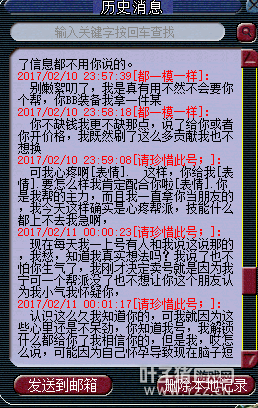 历史消息
输入关键字按回车查找
了信息都不用你说的。
2017/02/10 23:57:39[都一模一样]:
别嫩絮叨了，我是真有用不然不会要你
个帮，你BB装备我拿一件某
2017/02/10 23:58:18[都一模一样]:
你不缺钱我更不缺那点，说了给你或者
你开价格，我既然刷了这么多贡献我也不
想换
2017/02/10 23:59:08[请珍惜此号;]:
可我心疼啊[表情]. 这样，你给我[表
情].要怎么样我肯定配合你啦[表情].你
是我帮的主力，而且我一直拿你当朋友的
，我今天这样确实是心疼帮派，技能什么
都上不去我急啊，
2017/02/11 00:00:23[请珍惜此号;]:
现在每天我一上号有人和我说这说那的
，我愁，知道我真实想法吗？我说了也不
怕你生气了，我刚才决定卖号就是因为我
宁可一个帮派没了也不想让你这个朋友认
为我小气我怀疑你，
2017/02/11 00:01:17[请珍惜此号;]:
认识这么久我知道你的，可我就因为这
些心里还是不呆劲，你知道我号，我解锁
什么都给你了我相信你的，但是我，哎怎
么说，可能因为自己怀孕导致现在脑子短
发送到邮箱
删除本地记录
叶子猪游戏网